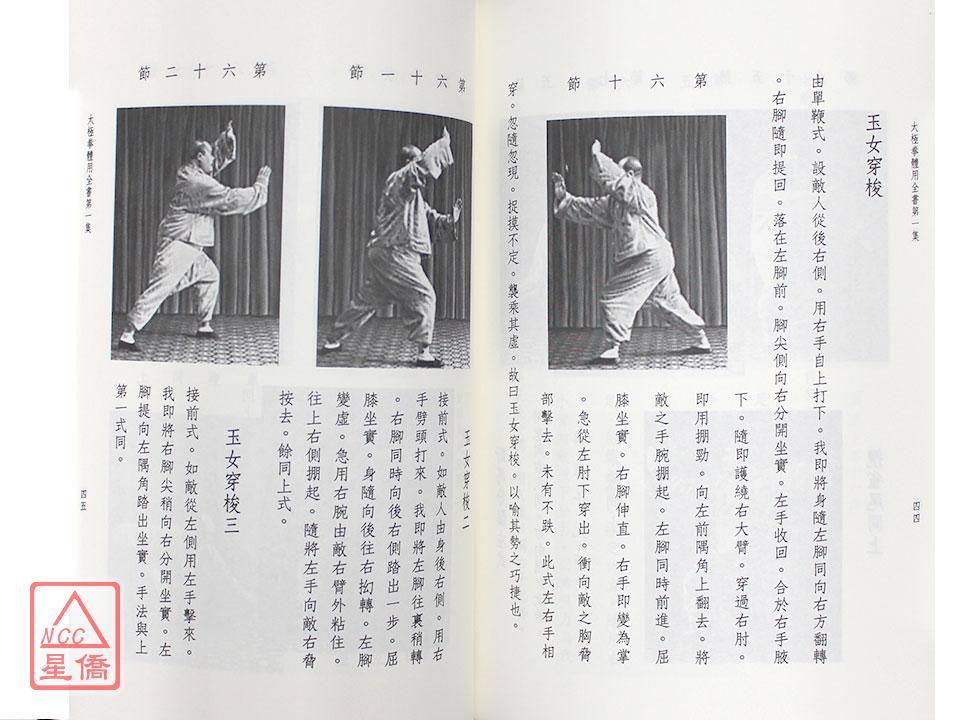 太極拳體用全書第一集
四四
第六十節
玉女穿梭
由單鞭式。設敵人從後右側。用右手自上打下。我即將身隨左腳同向右方翻轉
。右腳隨即提回。落在左腳前。腳尖側向右分開坐實。左手收回。合於右手腋
下。隨即護繞右大臂。穿過右肘。
即用掤勁。向左前隅角上翻去。將
敵之手腕掤起。左腳同時前進。屈
膝坐實。右腳伸直。右手即變為掌
。急從左肘下穿出。衝向敵之胸脅
部擊去。未有不跌。此式左右手相
穿。忽隨忽現。捉摸不定。襲乘其虛。故曰玉女穿梭。以喻其勢之巧捷也。
第六十一節
玉女穿梭二
接前式。如敵人由身後右側。用右
手劈頭打來。我即將左腳往裏稍轉
。右腳同時向後右側踏出一步。屈
膝坐實。身隨向後往右拗轉。左腳
變虛。急用右腕由敵右臂外粘住。
往上右側掤起。隨將左手向敵右脅
按去。餘同上式。
第六十二節
玉女穿梭三
接前式。如敵從左側用左手擊來。
我即將右腳尖稍向右分開坐實。左
腳提向左隅角踏出坐實。手法與上
第一式同。
太極拳體用全書第一集
四五
NCC
星僑